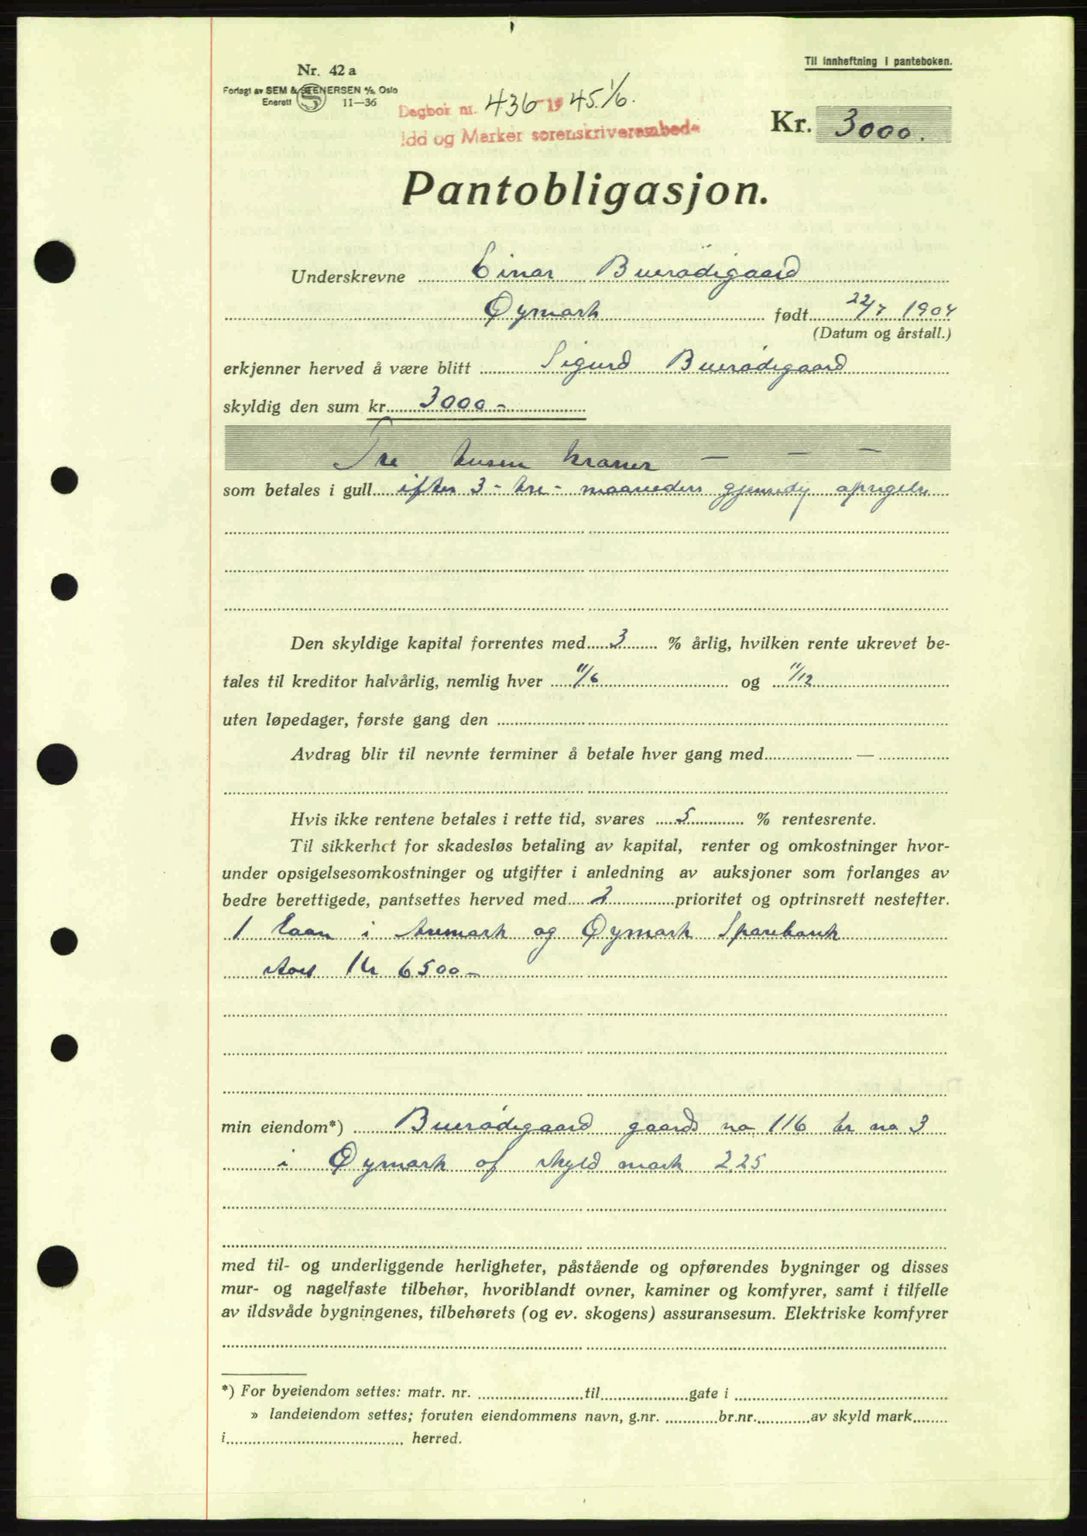 Til innheftning i panteboken.
Nr. 42 a
Forlagt av SEM & STENERSEN A/S, Oslo
Enerett 11—36
Dagbok nr. 436 19 45 1/6.
Idd og Marker sorenskriverembede
Kr. 3000.
Pantobligasjon.
Underskrevne Einar Buerødegaard
Øymark født 22/7 1904
(Datum og årstall.)
erkjenner herved å være blitt Sigurd Buerødegaard
skyldig den sum kr. 3000-
Tre tusen kroner — — —
som betales i gull efter 3- tre- maaneders gjensidig opsigelse
Den skyldige kapital forrentes med 3 % årlig, hvilken rente ukrevet be-
tales til kreditor halvårlig, nemlig hver 11/6 og 11/12
uten løpedager, første gang den
Avdrag blir til nevnte terminer å betale hver gang med —
Hvis ikke rentene betales i rette tid, svares 5 % rentesrente.
Til sikkerhet for skadesløs betaling av kapital, renter og omkostninger hvor-
under opsigelsesomkostninger og utgifter i anledning av auksjoner som forlanges av
bedre berettigede, pantsettes herved med 2 prioritet og optrinsrett nestefter.
1 laan i Aremark og Øymark Sparebank
stort Kr 6500-
min eiendom*) Buerødegaard gaards no 116 br no 3
i Øymark af skyld mark 2.25
med til- og underliggende herligheter, påstående og opførendes bygninger og disses
mur- og nagelfaste tilbehør, hvoriblandt ovner, kaminer og komfyrer, samt i tilfelle
av ildsvåde bygningenes, tilbehørets (og ev. skogens) assuransesum. Elektriske komfyrer
*) For byeiendom settes: matr. nr. til gate i
» landeiendom settes; foruten eiendommens navn, g.nr. br.nr. av skyld mark
i herred.